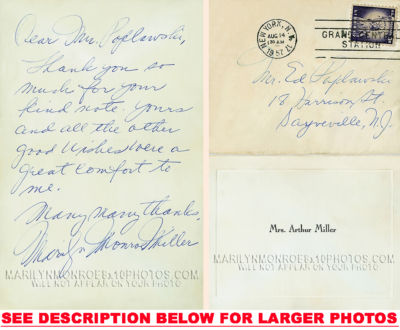 Dear Mr. Poplawski,
Thank you so
much for your
kind note. yours
and all the other
good wishes were a
great comfort to
me.
Many many thanks,
Marilyn Monroe Miller
MARILYNMONROE8x10PHOTOS.COM
WILL NOT APPEAR ON YOUR PHOTO
NEW YORK, N.Y.
AUG 14
1957
GRAND CENTRAL
STATION
Mr. Ed Poplawski
18 Harrison St.
Sayreville, N.J.
Mrs. Arthur Miller
MARILYNMONROE8x10PHOTOS.COM
WILL NOT APPEAR ON YOUR PHOTO
SEE DESCRIPTION BELOW FOR LARGER PHOTOS